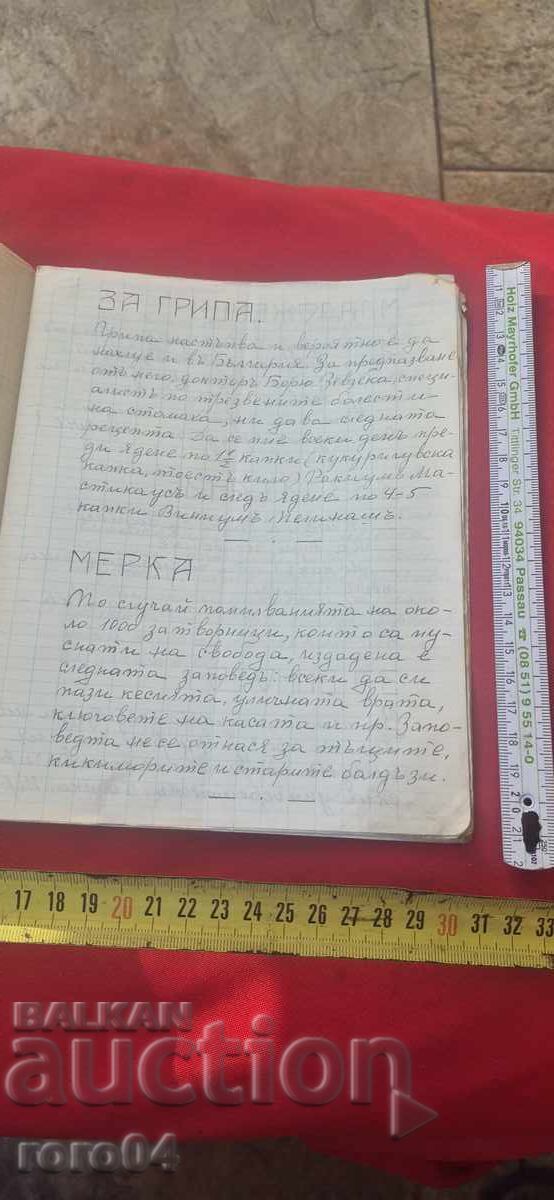 ЗА ГРИПА.
Грипа настъпва и вероятно е да
нахлуе и въ България. За предпазване
отъ него, докторъ Борю Зевзека, специ-
алистъ по трезвените болести
на стомаха, ни дава следната
рецепта. Да се пие всеки день пре-
ди ядене по 1/2 капки (кукуригувска
капка, тоестъ кило) Ракиумъ Ма-
стикаусъ и следъ ядене по 4-5
капки Виниумъ Пелинашъ.
МЕРКА
По случай помилванията на око-
ло 1000 затворници, които са пу-
снати на свобода, издадена е
следната заповедь: всеки да си
пази кесията, уличната врата,
ключовете на касата и пр. Запо-
ведта не се отнася за тъщите,
кикиморите и старите балдъзи.
Holz Mayrhofer GmbH
Tittlinger Str. 34 94034 Passau ☎ (08 51) 9 55 14-0
17 18 19 20 21 22 23 24 25 26 27 28 29 30 31 32 33
BALKAN
auction
roro04